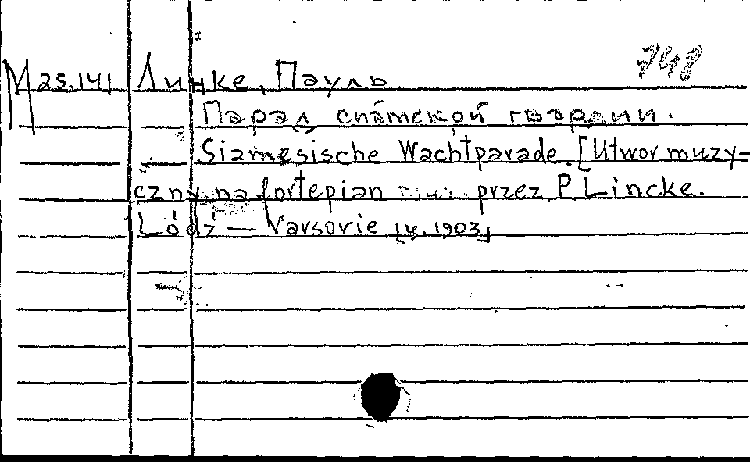 748
M 25.141 Линке, Пауль
Парад сиамской гвардии.
Siamesische Wachtparade. [Utwor muzy-
czny na fortepian przez P. Lincke.
Łódź — Varsovie [v. 1903]